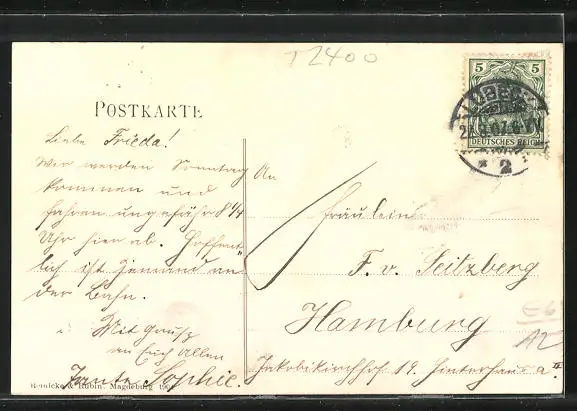 T2400
POSTKARTE
Liebe Frieda!
Wir werden Sonntag
kommen und
fahren ungefähr 8 1/4
Uhr hier ab. Hoffent-
lich ist Jemand an
der Bahn.
Mit Gruß
an Euch Allen
Tante Sophie.
Reinicke & Rubin, Magdeburg 190
An
Fräulein
F. v. Seitzberg
Hamburg
Jakobikirchhof 19. Hinterhaus a II
5 5
DEUTSCHES REICH
LÜBECK
* 2
E6
A2